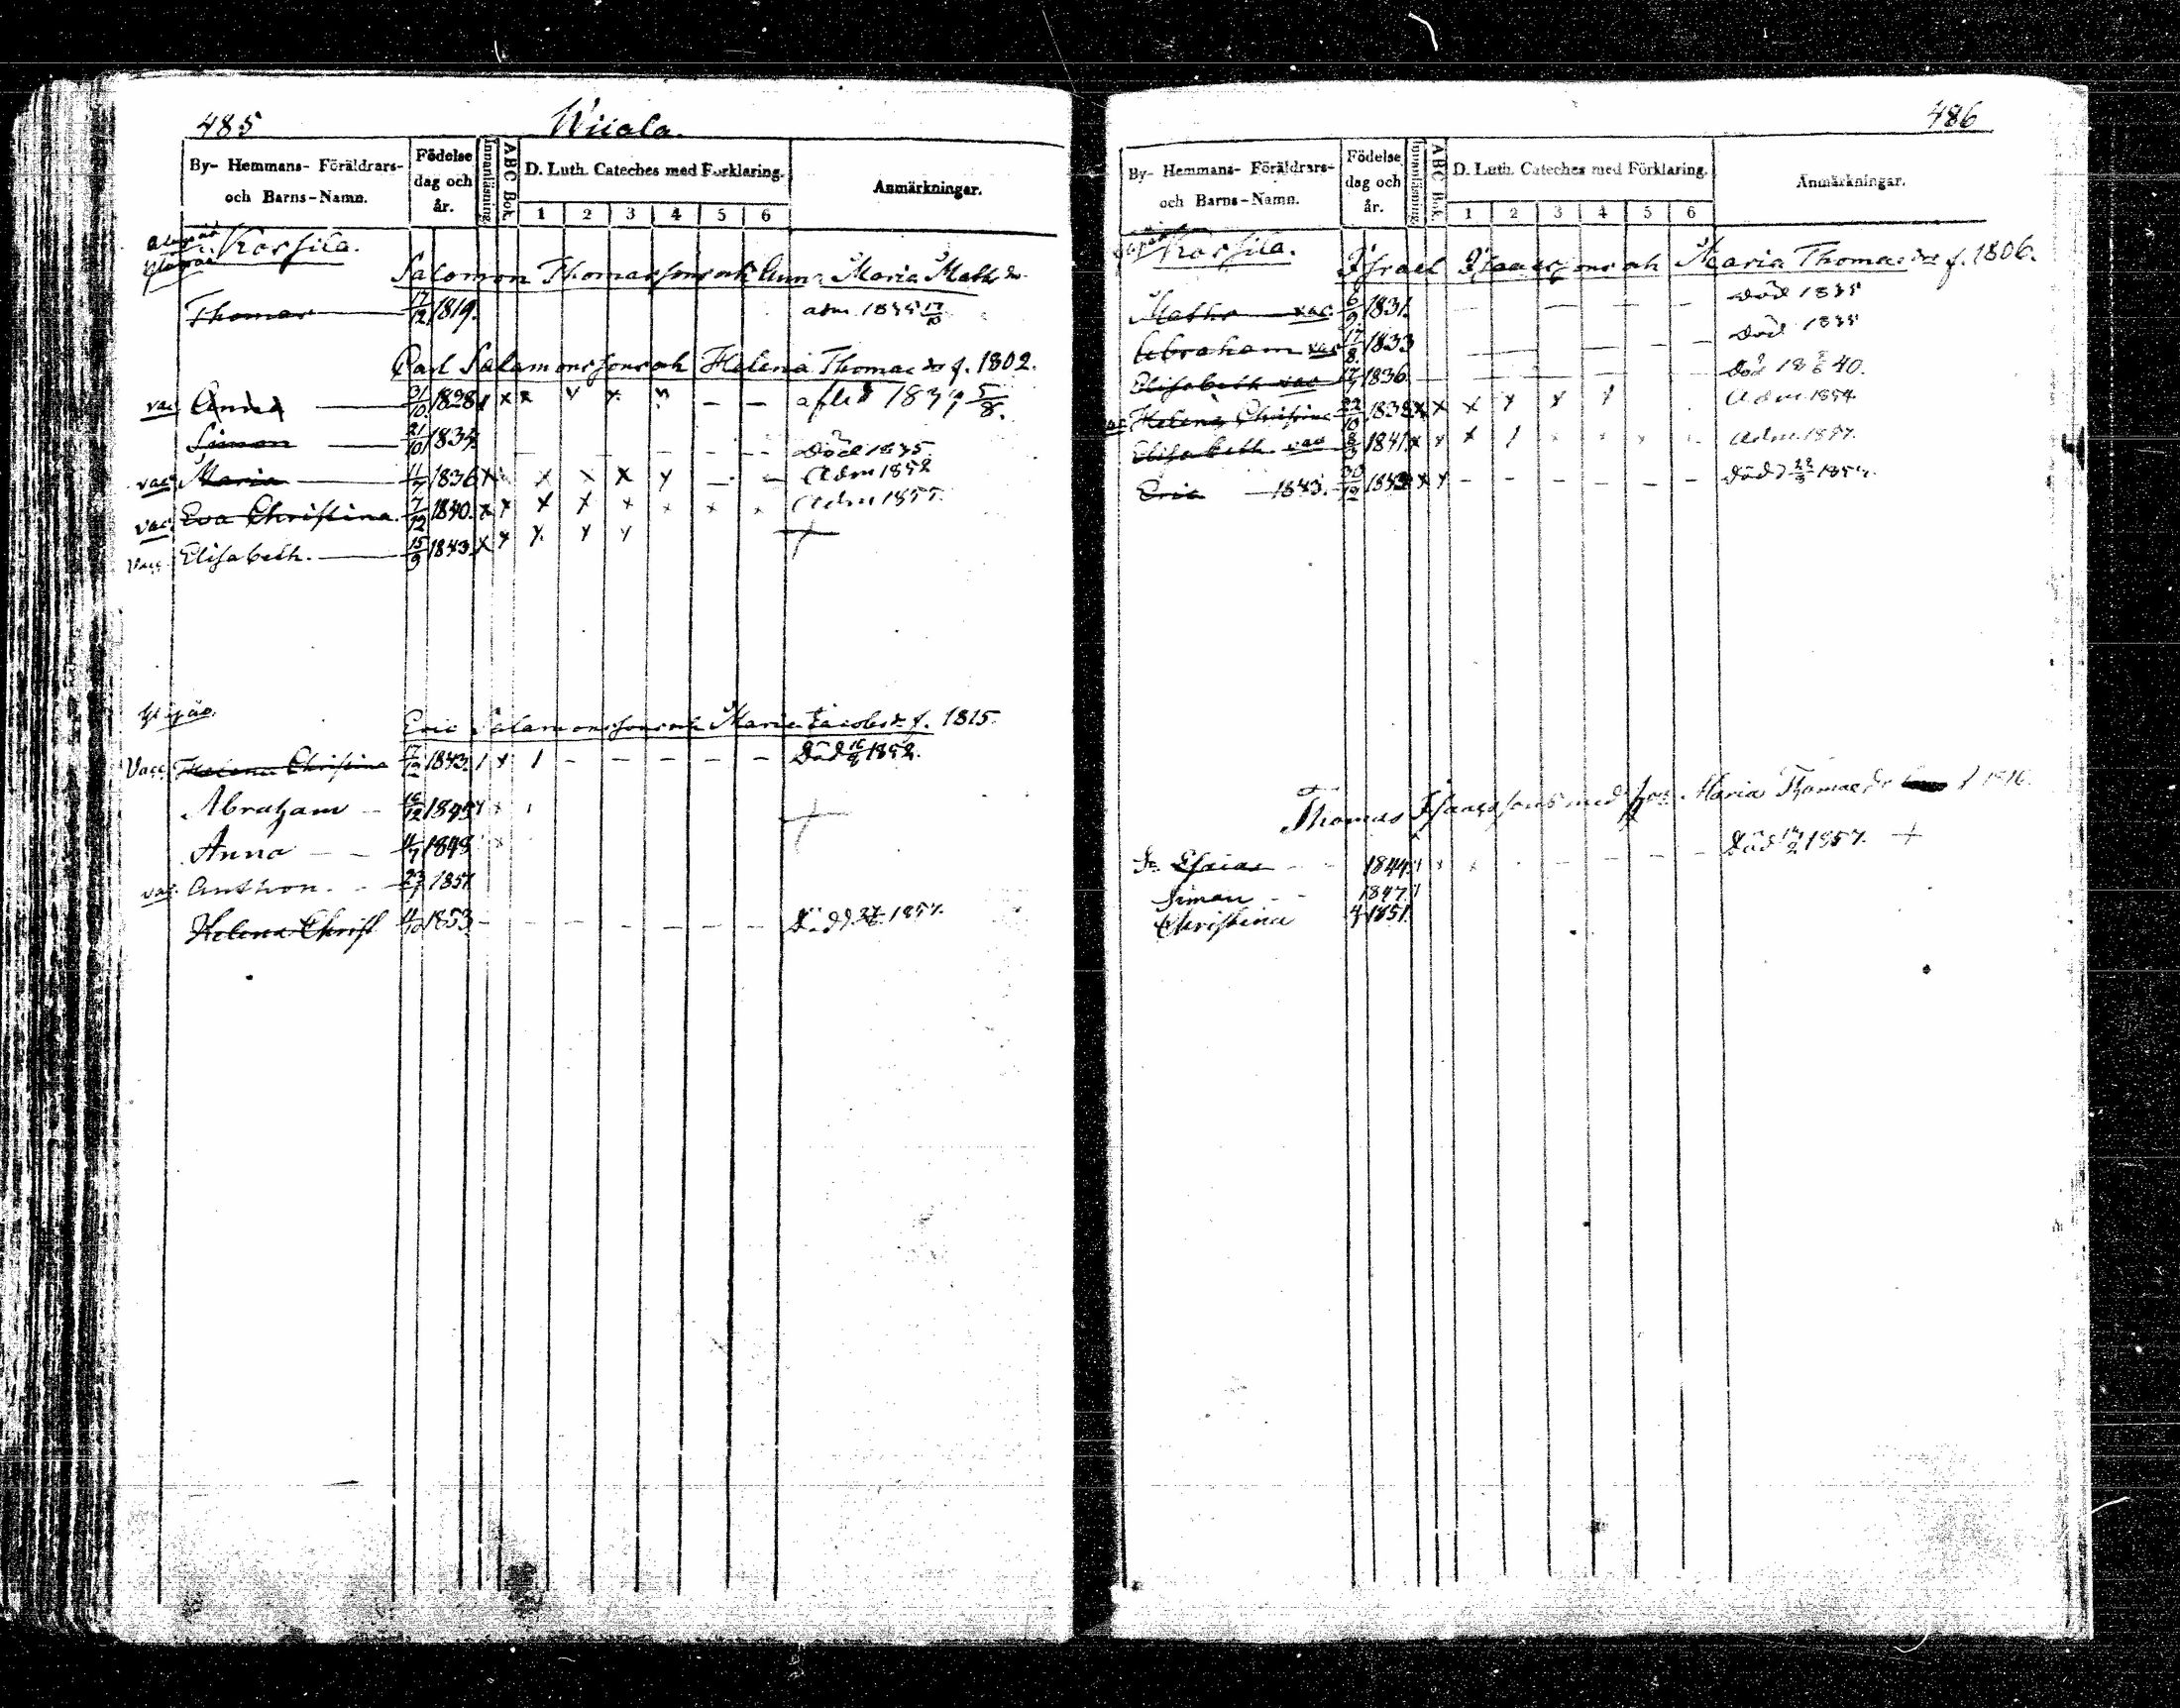 485 Wiiala.
By- Hemmans- Föräldrars- och Barns-Namn. Födelse dag och år. Innanläsning. ABC Bok. D. Luth. Cateches med Förklaring. 1 2 3 4 5 6 Anmärkningar.
Korsila.
Salomon Thomassons och Anna Maria Mathsdr
Thomas 17/12 1819. adm 1835
Carl Salamonssons och Helena Thomasdr f. 1802.
vac Anna 1828 x x
Simon 21/10 Död 1835.
vac Maria 11/7 1836 x x x x Adm 1852
vac. Eva Christina. 7/12 1840. x x x x x x x x Adm 1855.
Vacc Elisabeth. 15/9 1843 x
Eric Salamonssons och Maria Jacobsdr f. 1815.
Vacc Helena Christina 17/12 1843. Död 1852.
Abraham
Anna 1848
vac. Anthon. 1851
Helena Christ 1853. 1857.
486
By- Hemmans- Föräldrars- och Barns-Namn. Födelse dag och år. Innanläsning. ABC Bok. D. Luth. Cateches med Förklaring. 1 2 3 4 5 6 Anmärkningar.
Korsila.
Israel Isaacssons och Maria Thomasdr f. 1806.
Maths vac. 6/9 1831. Död 1835
Abraham vac 17/8 1833 Död 1835
Elisabeth vac 1836 Död 40.
Helena Christina 22/10 1838 x x x Adm. 1854
Elisabeth vac 8/3 1841 Adm. 1857.
Eric 1843. 30/12
Thomas Isaacssons med Maria Thomasdr
Esaias 1844 Död 1857.
Simon 1847
Christina 1851